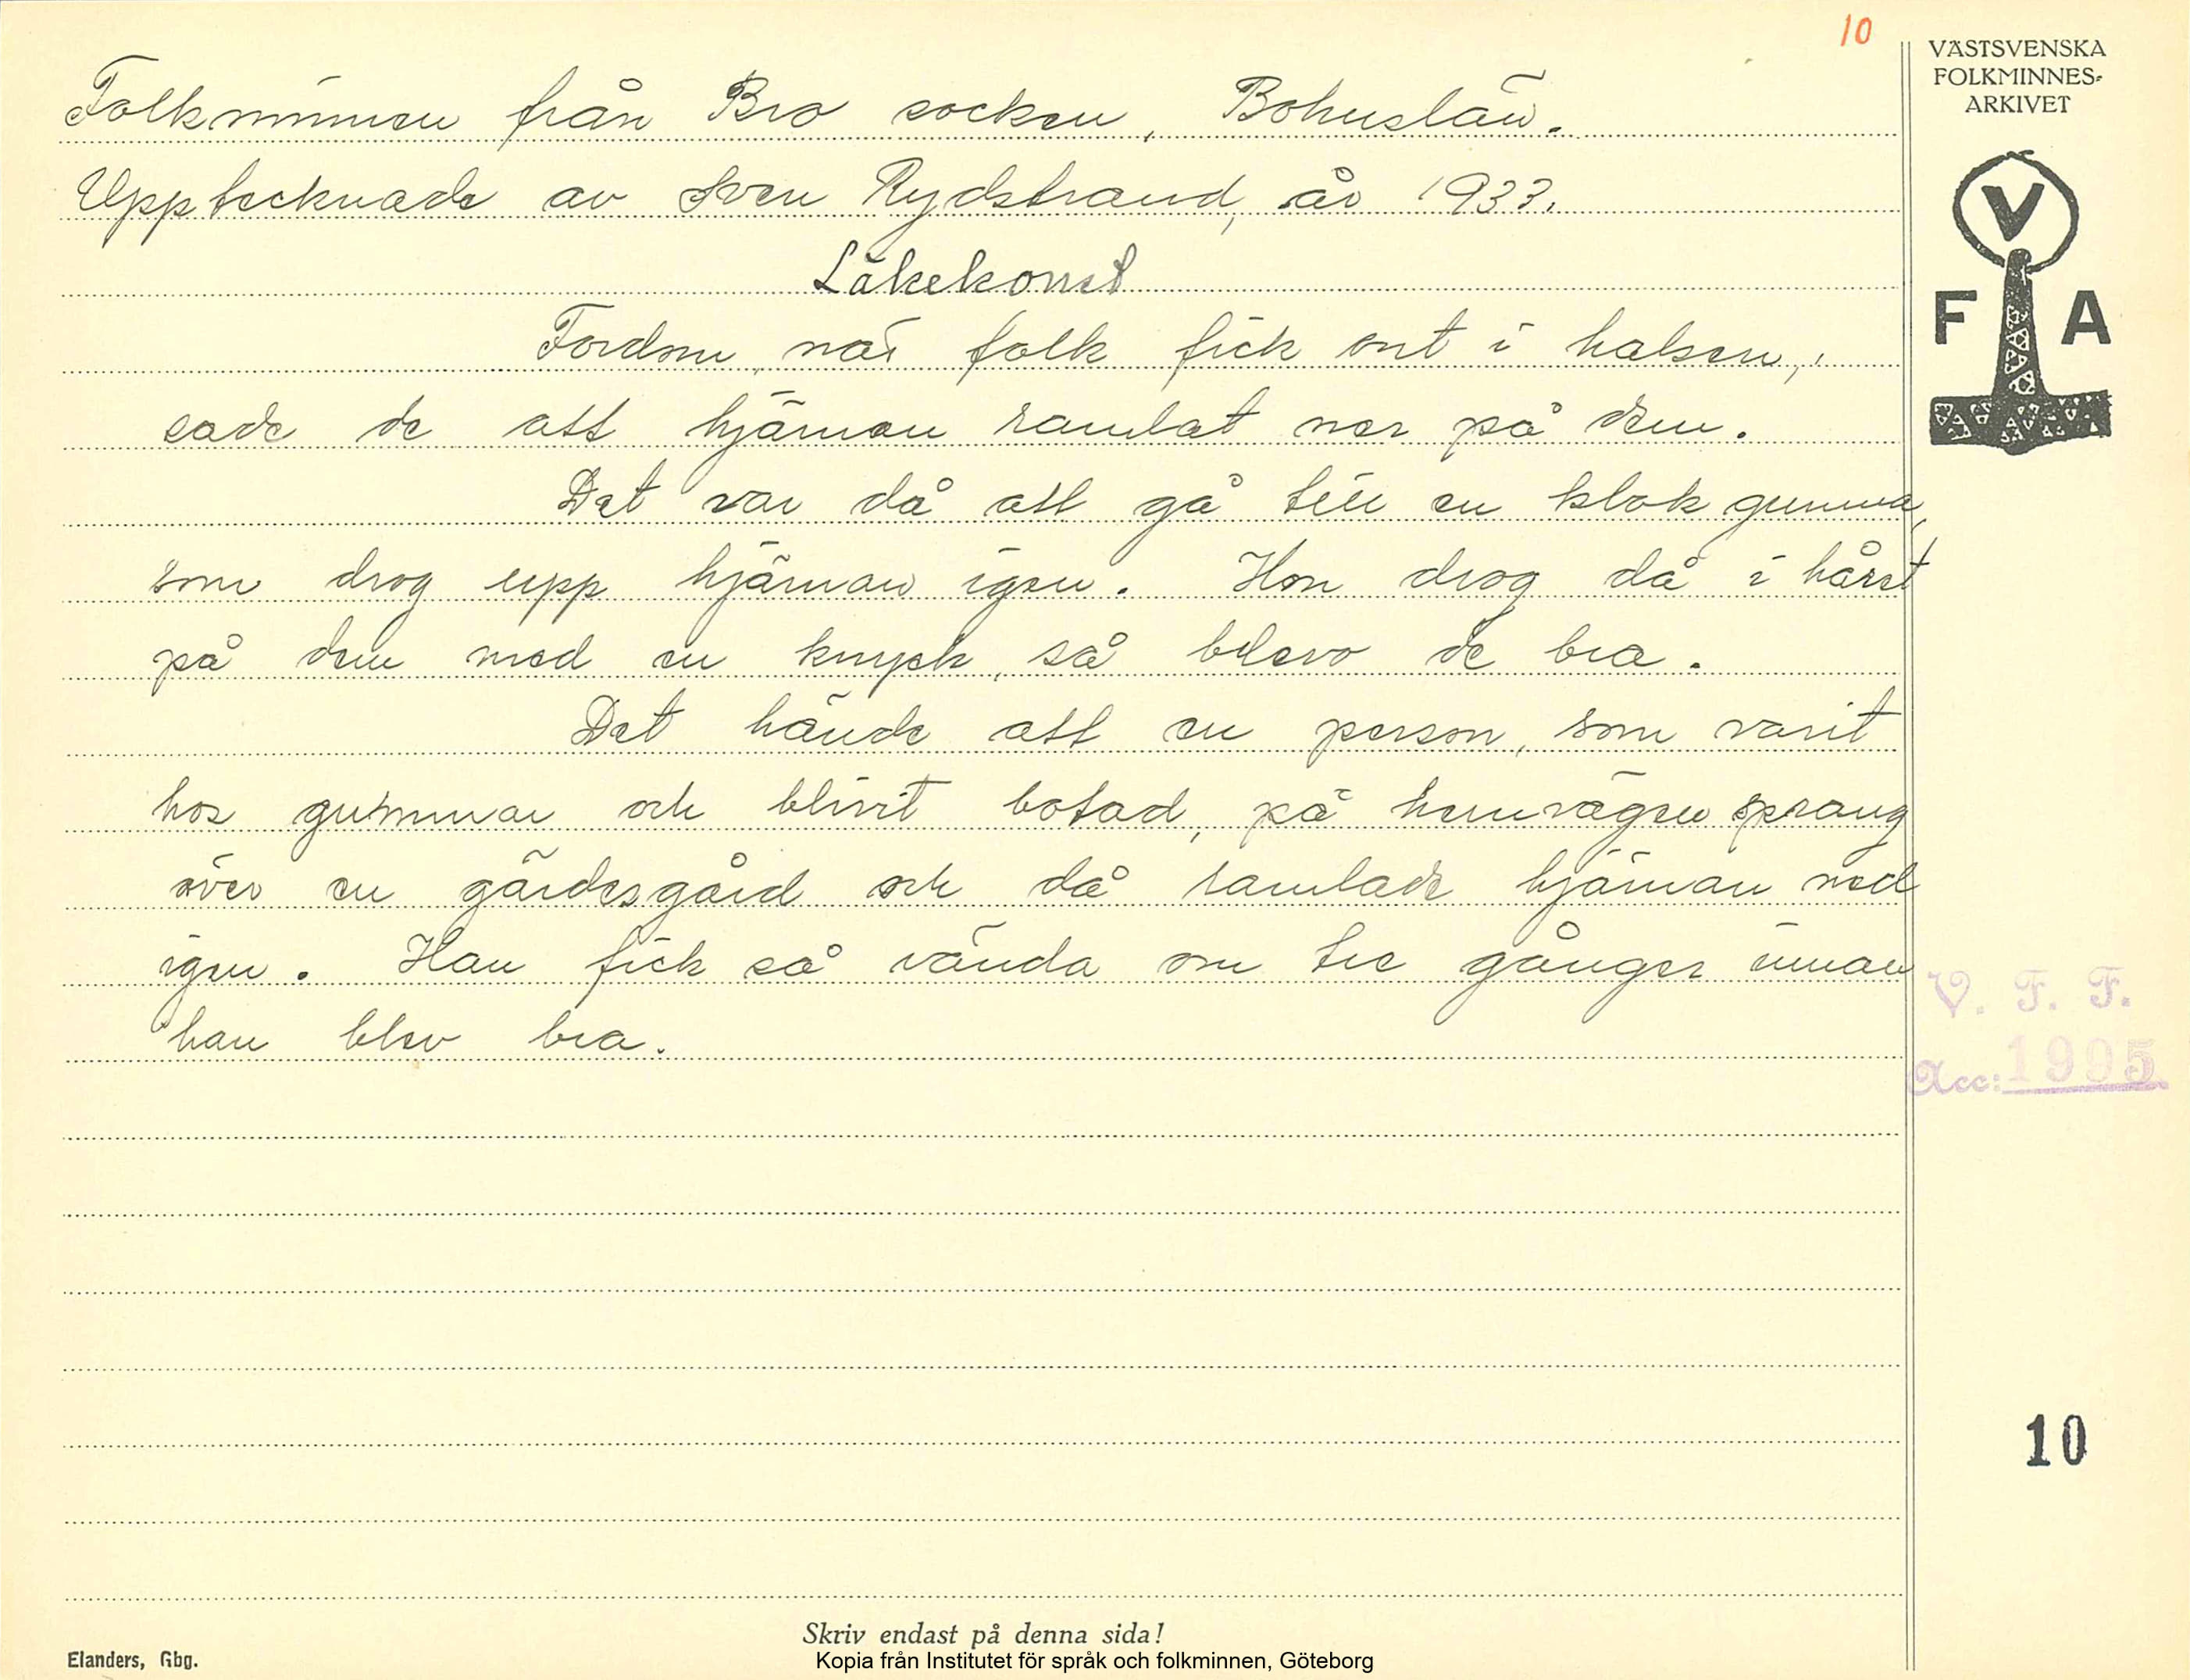 10
VÄSTSVENSKA
FOLKMINNES-
ARKIVET
V
F A
Folkminnen från Bro socken, Bohuslän.
Upptecknade av Sven Rydstrand, år 1933.
Läkekonst
Fordom, när folk fick ont i halsen,
sade de att hjärnan ramlat ner på dem.
Det var då att gå till en klok gumma,
som drog upp hjärnan igen. Hon drog då i håret
på dem med en knyck, så blevo de bra.
Det hände att en person, som varit
hos gumman och blivit botad, på hemvägen sprang
över en gärdesgård och då ramlade hjärnan ned
igen. Han fick så vända om tre gånger innan
han blev bra.
V. F. F.
Acc: 1995
10
Skriv endast på denna sida!
Elanders, Gbg.
Kopia från Institutet för språk och folkminnen, Göteborg